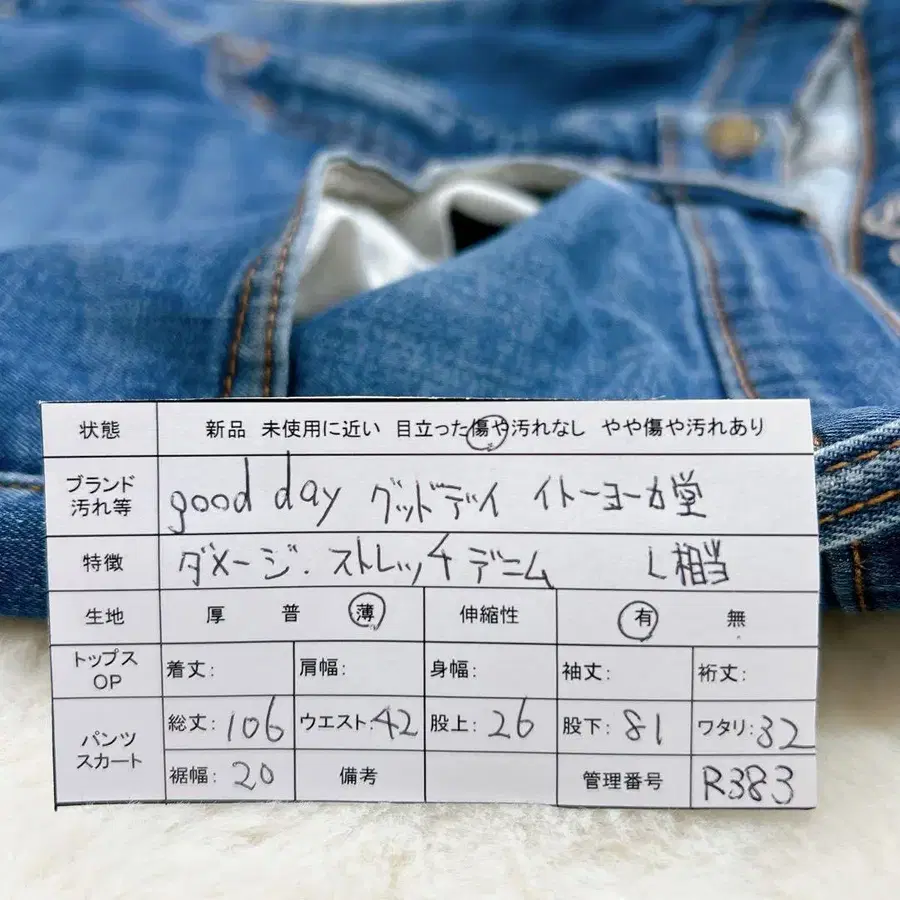 状態 新品 未使用に近い 目立った傷や汚れなし やや傷や汚れあり
ブランド
汚れ等
good day グッドデイ イトーヨーカ堂
特徴 ダメージ.ストレッチデニム L相当
生地 厚 普 薄 伸縮性 有 無
トップス
OP
着丈: 肩幅: 身幅: 袖丈: 裄丈:
パンツ
スカート
総丈:106 ウエスト:42 股上:26 股下:81 ワタリ:32
裾幅:20 備考 管理番号 R383